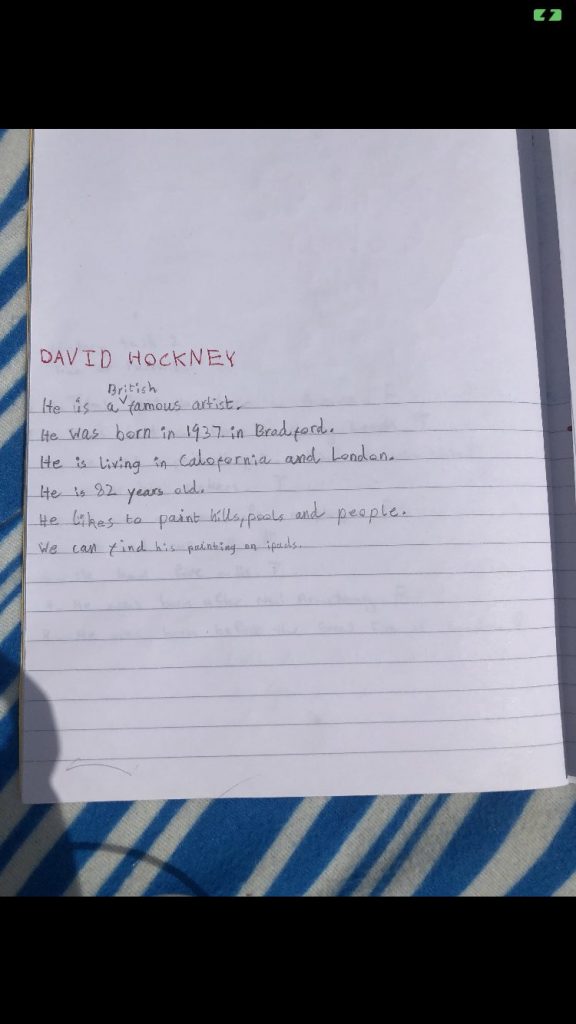 DAVID HOCKNEY
British
He is a famous artist.
He was born in 1937 in Bradford.
He is living in Calofornia and London.
He is 82 years old.
He likes to paint hills, pools and people.
We can find his painting on ipads.